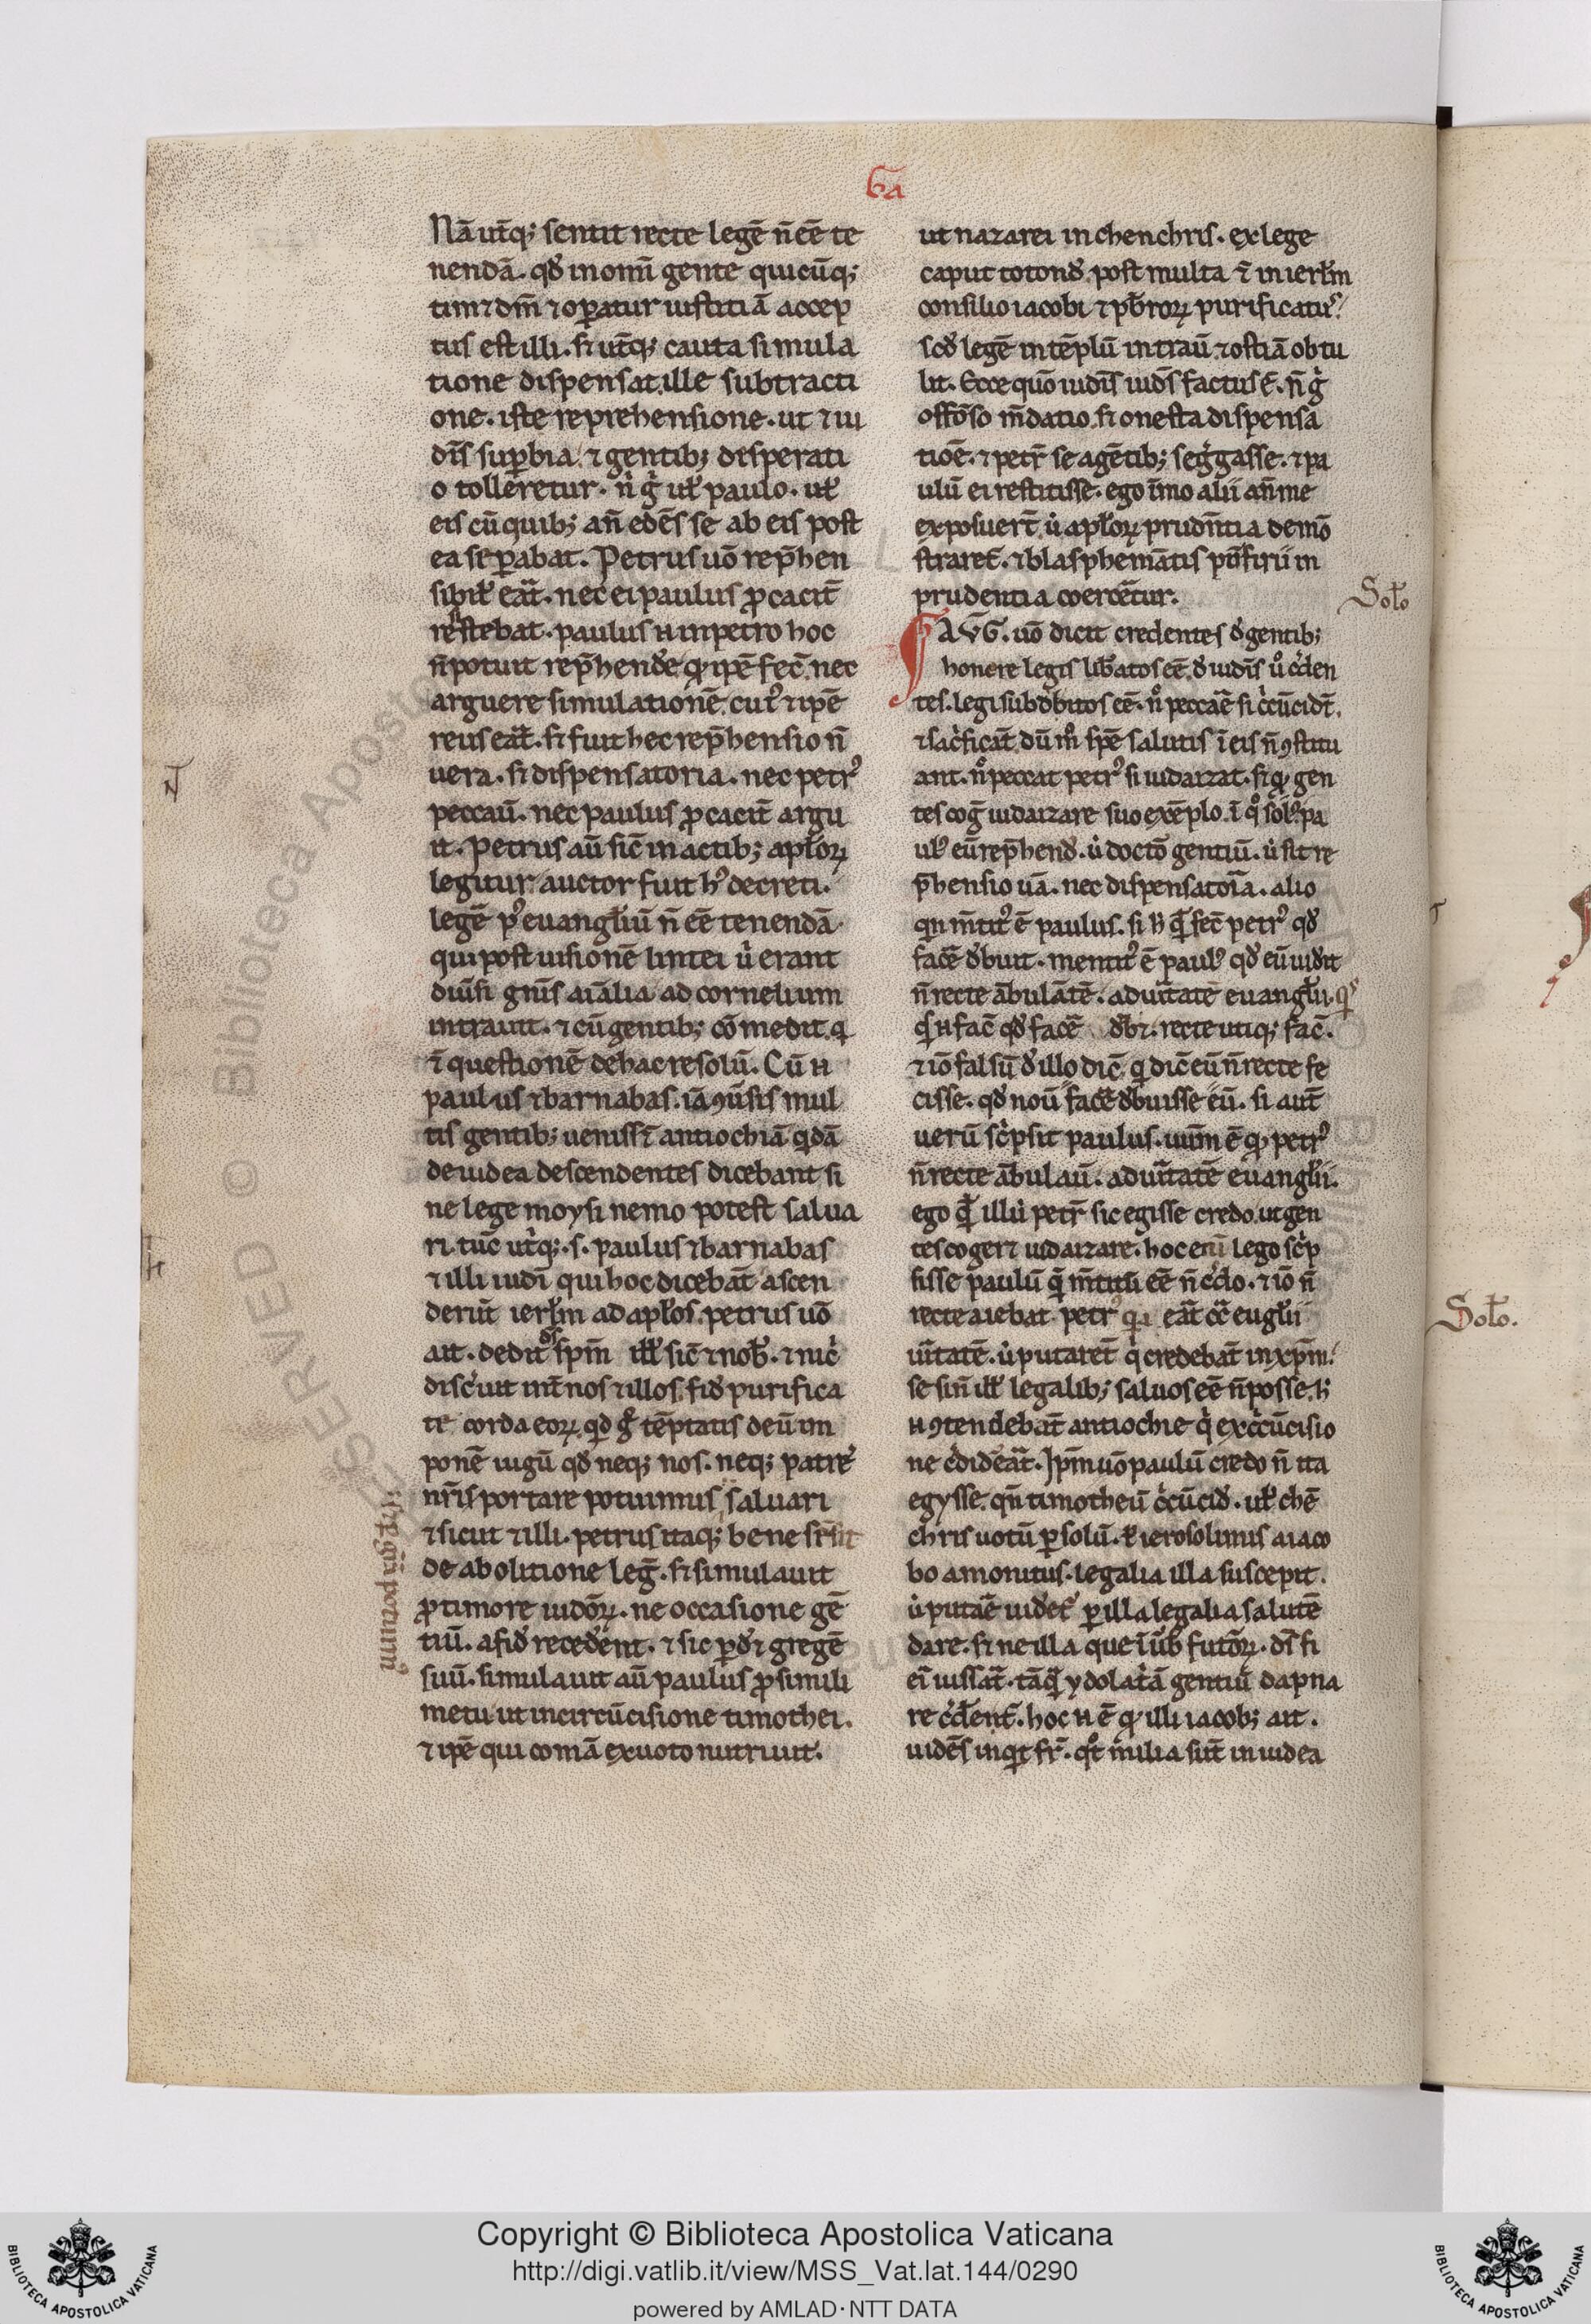 Ga
Nā utq; sentit recte legē n̄ eē te
nendā. qđ in om̄i gente quicūq;
tim& dm̄ & oꝑatur iustitiā accep
tus est illi. s; utq; cauta simula
tione dispensat. ille subtracti
one. iste reprehensione. ut & iu
dīs suꝑbia & gentib; desperati
o tolleretur. n̄ g̊ ul̄ paulo. ul̄
eis cū quib; an̄ edēs se ab eis post
ea seꝑabat. Petrus uō rep̄hen
sibil' eāt. nec ei paulus ꝓcacit̄
restebat. paulus n̄ in petro hoc
n̄ potuit rep̄hendē qđ ipē fec̄ nec
arguere simulationē cui' & ipē
reus eāt. s; fuit hec rep̄hensio n̄
uera. s; dispensatoria. nec petr'
peccaū. nec paulus ꝓcacit̄ argu
it. Petrus aū sic̄ in actib; apl'oꝝ
legitur auctor fuit h' decreti.
legē p' euangl'iū n̄ eē tenendā.
qui post uisionē lintei ů erant
diūsi gn̄is aīalia ad cornelium
intrauit. & cū gentib; cōmedit. q
& questionē de hac resolū. Cū n̄
paulus & barnabas. iā ꝯūsis mul
tis gentib; uenissēt antiochiā qdā
de iudea descendentes dicebant si
ne lege moysi nemo potest salua
ri. tūc utq;. s. paulus & barnabas
& illi iudī qui hoc dicebāt ascen
derūt ierl'm ad apl'os. petrus uō
ait. dedit ds sp̄m ill' sic̄ & nob'. & nic̄
disc̄uit int̄ nos & illos. fiđ purifica
te corda eoꝝ. qđ g̊ tēptatis deū im
ponē iugū qđ neq; nos. neq; patrē
nr̄is portare potuimus, saluari
& sicut & illi. petrus itaq; bene sēsit
de abolitione leḡ. s; simulauit
ꝓ timore iudōꝝ. ne occasione gē
tiū. a fiđ recedēnt. & sic ꝑd& gregē
suū. simulauit aū paulus ꝓ simili
metu ut in circūcisione timothei.
& ipē qui comā ex uoto nutriuit.
ut nazarei in chenchris. ex lege
caput totonđ. post multa & in ierl'm
consilio iacobi & pb'roꝝ purificatus
scđ legē in tēplū intraū. & ostiā obtu
lit. Ecce quō iudīs iudēs factus ē. n̄ g̊
offōso m̄datio. s; onesta dispensa
tiōē. & petr̄ se a gētib; seg̊gasse. & pa
ulū ei restitisse. ego īmo alii an̄ me
exposuert̄. ů apl'oꝝ prudn̄tia demō
straret̄. & blasphemātis porfirii in
prudentia coercētur.
AVG. uō dicit credentes đ gentib;
honere legis lib'atos eē. đ iudīs ů c̄den
tes. legi subđbitos eē. n̊ peccaē si c̄cūcidt̄.
& sac̄ficāt dū m̊ spē salutis ī eis n̄ ꝯstitu
ant. n̊ peccat petr' si iudaizat. s; q; gen
tes cog̊ iudaizare suo exēplo. ī q̊ sol' pa
ul' eū rep̄henđ. ů doctō gentiū. ů sit re
p̄hensio uā. nec dispensatoīa. alio
qn m̄tit' ē paulus. si h̄ q̄ fec̄ petr' qđ
facē đbuit. mentit' ē paul' qđ eū uiđit
n̄ recte ābulātē. ad uītatē euangl'ii. q's
q's n̄ fac̄ qđ facē đb&. recte utiq; fac̄.
& iō falsū đ illo dic̄. q dic̄ eū n̄ recte fe
cisse. qđ noū facē đbuisse eū. si aūt
uerū sc̄psit paulus. uūm ē qđ petr'
n̄ recte ābulaū. ad uītatē euangl'ii.
ego q̄ illū petr̄ sic egisse credo. ut gen
tes coger& iudaizare. hoc enī lego sc̄p
sisse paulū q̄ m̄titū eē n̄ c̄do. & iō n̄
recte aiebat petr' q̄ eāt c̄ē eugl'ii
uītatē. ů putaret̄ q̇ credebāt in xp̄m.
se sin̄ ill' legalib; saluos eē n̄ posse. h̄
n̄ ꝯtendebāt antiochie q̇ ex c̄cūcisio
ne c̄dideāt. Ip̄m uō paulū credo n̄ ita
egysse. qn̄ timotheū c̄cūciđ. ul' chē
chris uotū ꝑsolū. & ierosolimis a iaco
bo amonitus. legalia illa suscepit.
ů putaē uidēt ꝑ illa legalia salutē
dare. s; ne illa que ī ūb' futōꝝ. ds fi
eī iussāt. tāq̄ ydolat̄ā gentiū dapna
re c̄dent̄. hoc n̄ ē qđ illi iacob; ait.
uidēs inqt fr̄. qt̊ milia sūt in iudea
Sol'o
Sol'o.
Copyright © Biblioteca Apostolica Vaticana
http://digi.vatlib.it/view/MSS_Vat.lat.144/0290
powered by AMLAD·NTT DATA
BIBLIOTECA APOSTOLICA VATICANA
BIBLIOTECA APOSTOLICA VATICANA